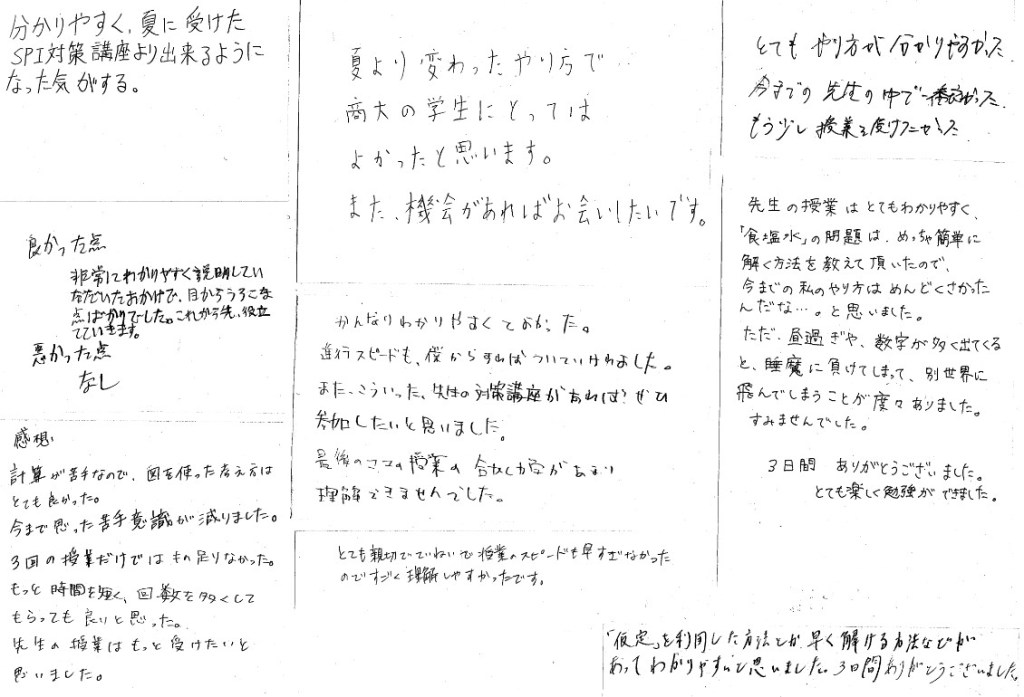 分かりやすく、夏に受けた
SPI対策講座より出来るように
なった気がする。
良かった点
非常にわかりやすく説明してい
ただいたおかげで、目からうろこな
点ばかりでした。これから先、役立
てていきます。
悪かった点
なし
感想
計算が苦手なので、図を使った考え方は
とても良かった。
今まで思った苦手意識が減りました。
3回の授業だけではもの足りなかった。
もっと時間を短く、回数を多くして
もらっても良いと思った。
先生の授業はもっと受けたいと
思いました。
夏より変わったやり方で
商大の学生にとっては
よかったと思います。
また、機会があればお会いしたいです。
かんなりわかりやすくてよかった。
進行スピードも、僕からすればついていけれました。
また、こういった、先生の対策講座があれば、ぜひ
参加したいと思いました。
最後のココの授業の
があまり
理解できませんでした。
とても親切でていねいで授業のスピードも早すぎなかった
のですごく理解しやすかったです。
とても やり方が分かりやすかった
今までの先生の中で一番良かった
もう少し授業を受けたかった
先生の授業はとてもわかりやすく、
「食塩水」の問題は、めっちゃ簡単に
解く方法を教えて頂いたので、
今までの私のやり方はめんどくさかった
んだな…。と思いました。
ただ、昼過ぎや、数字が多く出てくる
と、睡魔に負けてしまって、別世界に
飛んでしまうことが度々ありました。
すみませんでした。
3日間 ありがとうございました。
とても楽しく勉強ができました。
「仮定」を利用した方法とか、早く解ける方法などが
あってわかりやすいと思いました。3日間ありがとうございました。